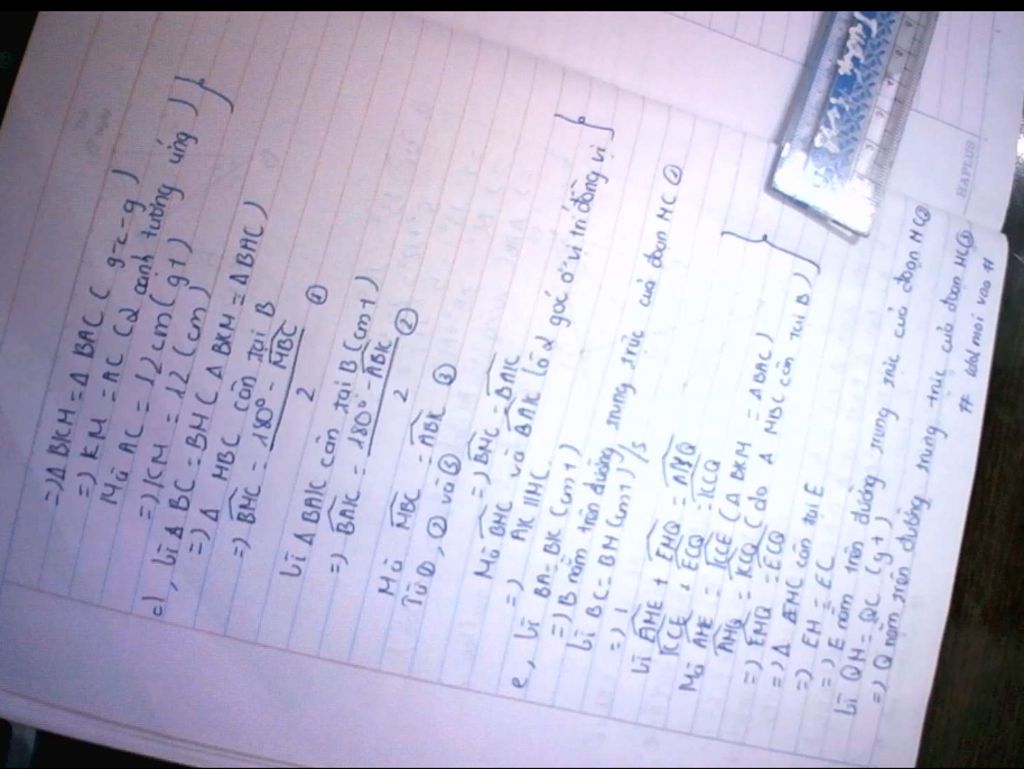 =) Δ BKM = Δ BAC ( g-c-g )
=) KM = AC (2 cạnh tương ứng ) }
Mà AC = 12 cm ( gt )
=) KM = 12 (cm)
d, Vì Δ BC = BM ( Δ BKM = Δ BAC )
=) Δ MBC cân tại B
=) BMC = 180° - MBC / 2 ①
Vì Δ BAK cân tại B (cmt)
=) BAK = 180° - ABK / 2 ②
Mà MBC = ABK ③
Từ ①, ② và ③
=) BMC = BAK
Mà BMC và BAK là 2 góc ở vị trí đồng vị }
=) AK // MC
e, Vì BA = BK (cmt)
=) B nằm trên đường trung trực của đoạn MC ①
Vì BC = BM (cmt)
Vì AME + EMQ = AMQ
KCE + ECQ = KCQ
Mà AME = KCE ( Δ BKM = Δ BAC )
AMQ = KCQ ( do Δ MBC cân tại B ) }
=) EMQ = ECQ
=) Δ EMC cân tại E
=) EM = EC
=) E nằm trên đường trung trực của đoạn MC ②
Vì QM = QC ( gt )
=) Q nằm trên đường trung trực của đoạn MC ③
HAPLUS